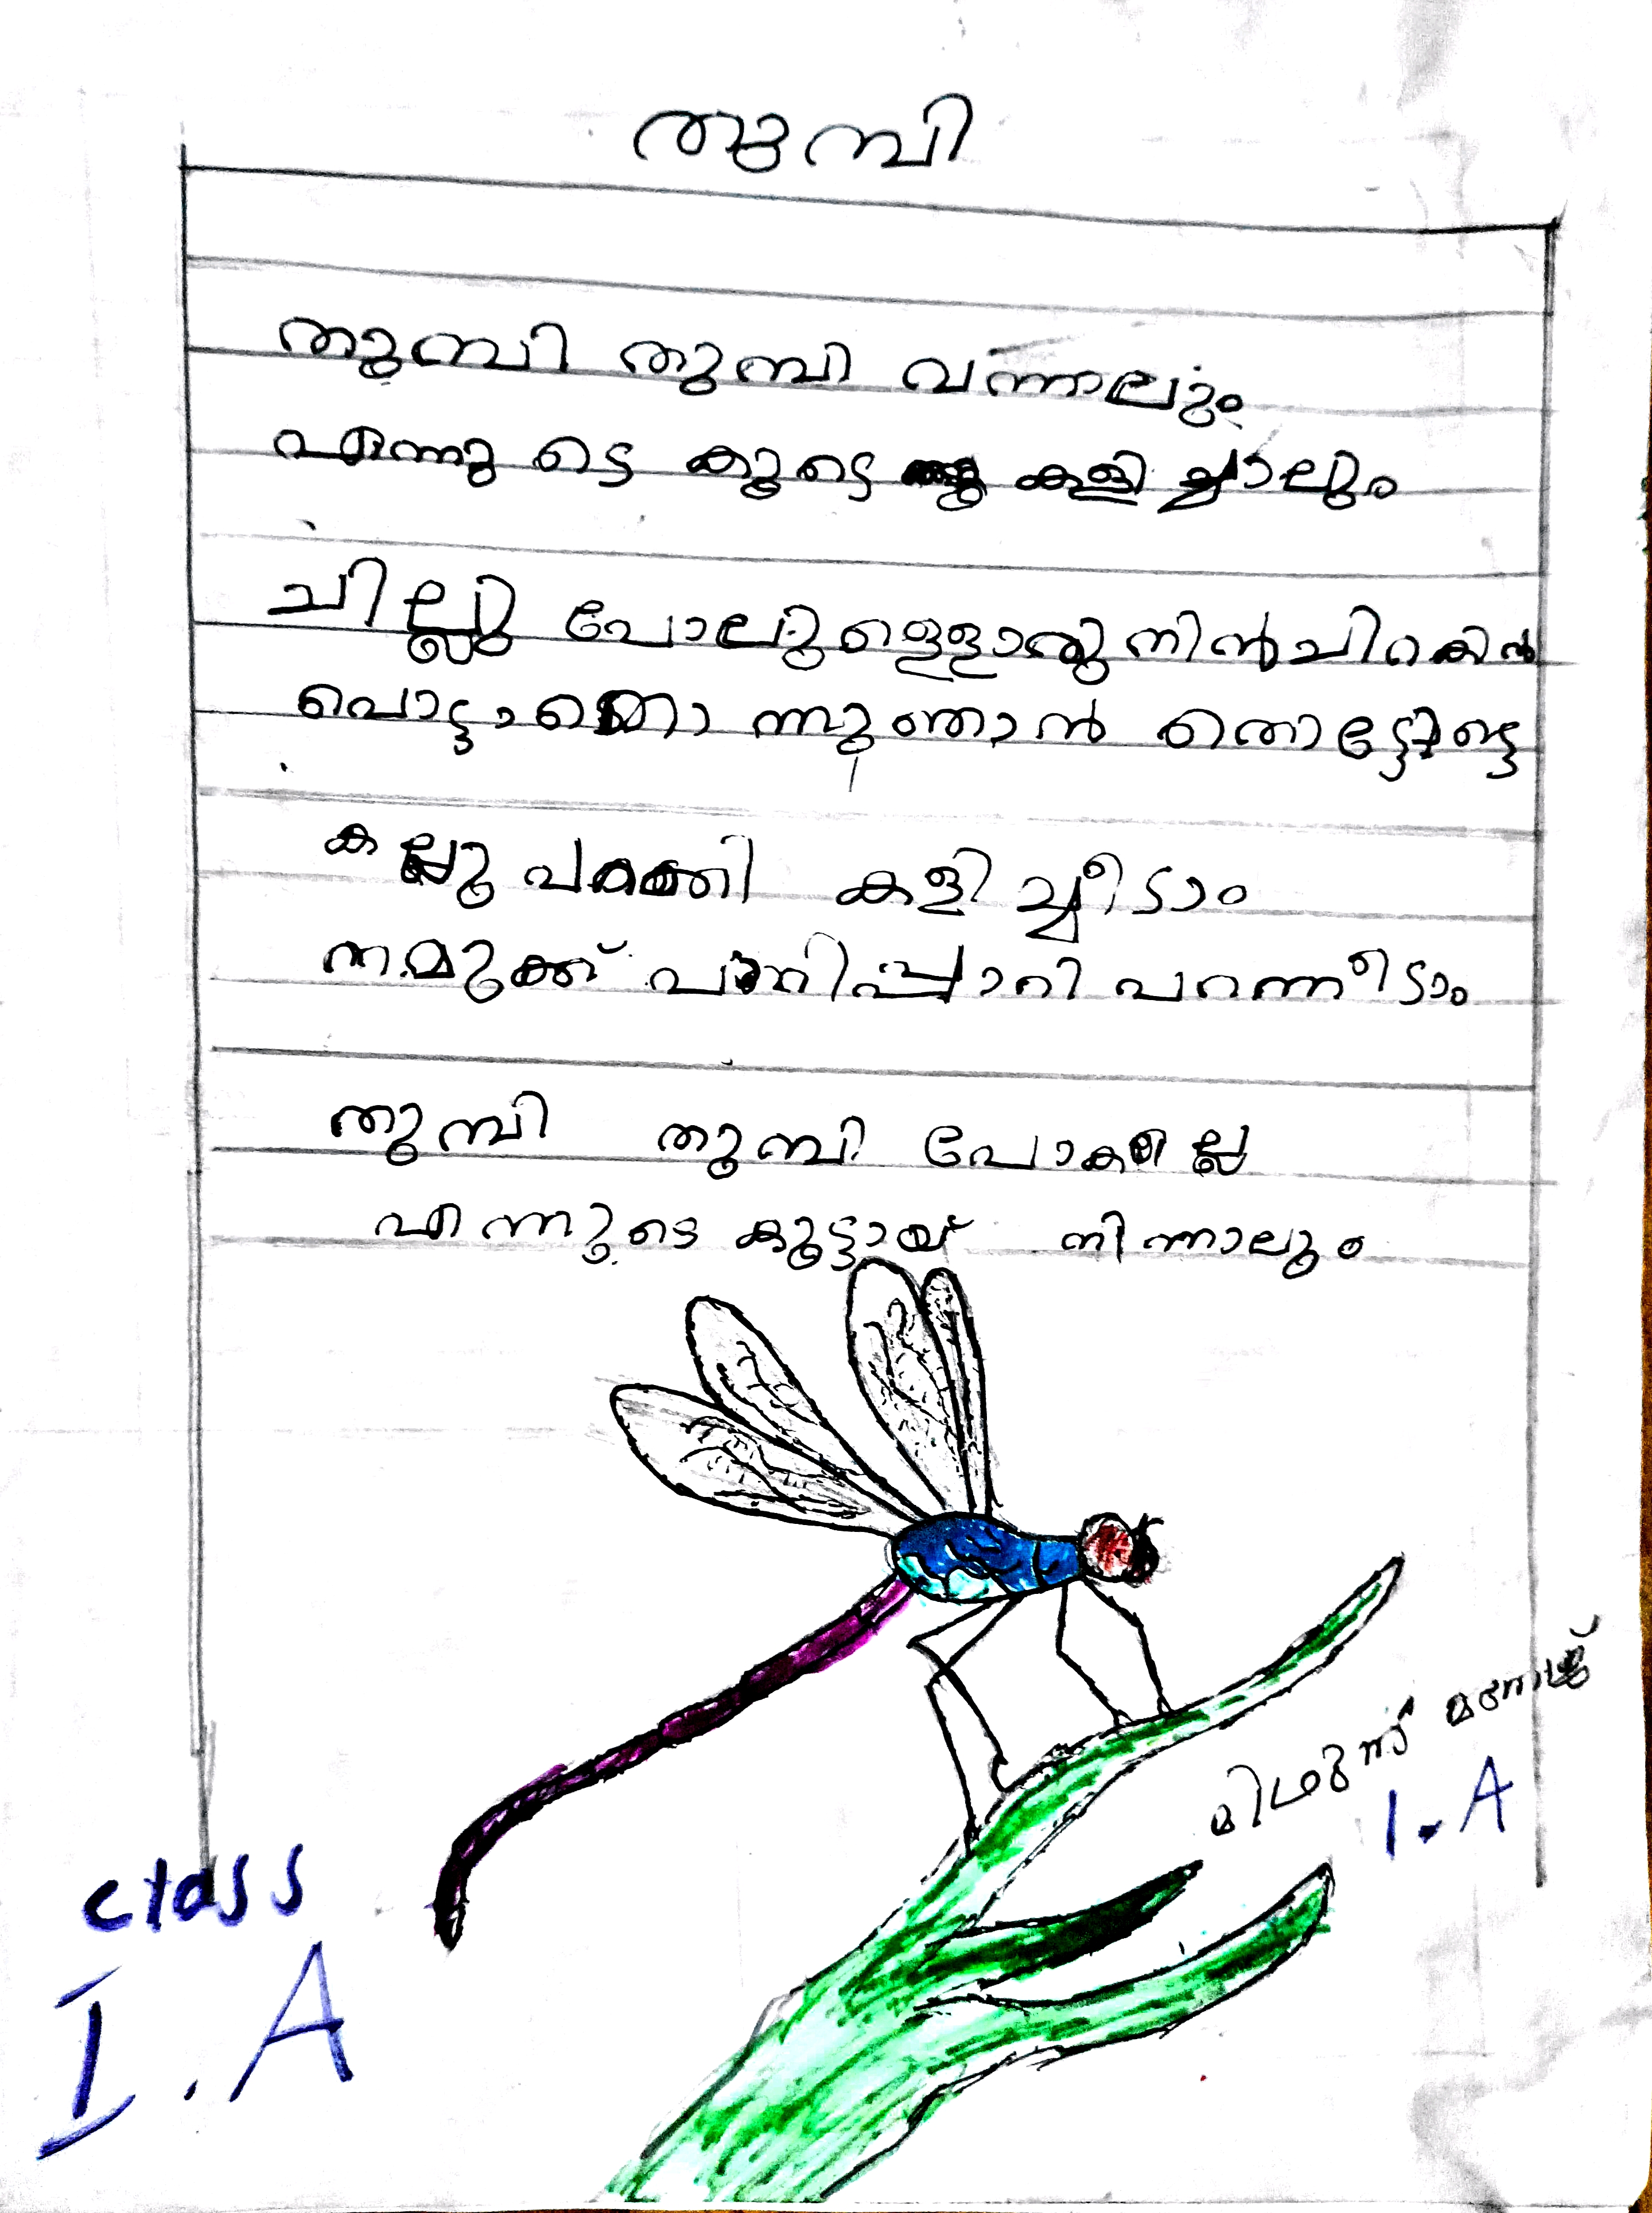 തുമ്പി
തുമ്പി തുമ്പി വന്നാലും
എന്നു ടെ കൂടെ കളി ച്ചാലും
ചില്ലു പോലുള്ളൊരു നിൻ ചിറകിൻ
പൊട്ടാതൊ ന്നു ഞാൻ തൊട്ടോട്ടെ
കല്ലു പെറുക്കി കളി ച്ചീടാം
നമുക്ക് പാറിപ്പാറി പറന്നീടാം
തുമ്പി തുമ്പി പോകല്ലെ
എന്നുടെ കൂട്ടായ് നിന്നാലും
മിഥുൻ മനോജ്
1. A
class
I. A